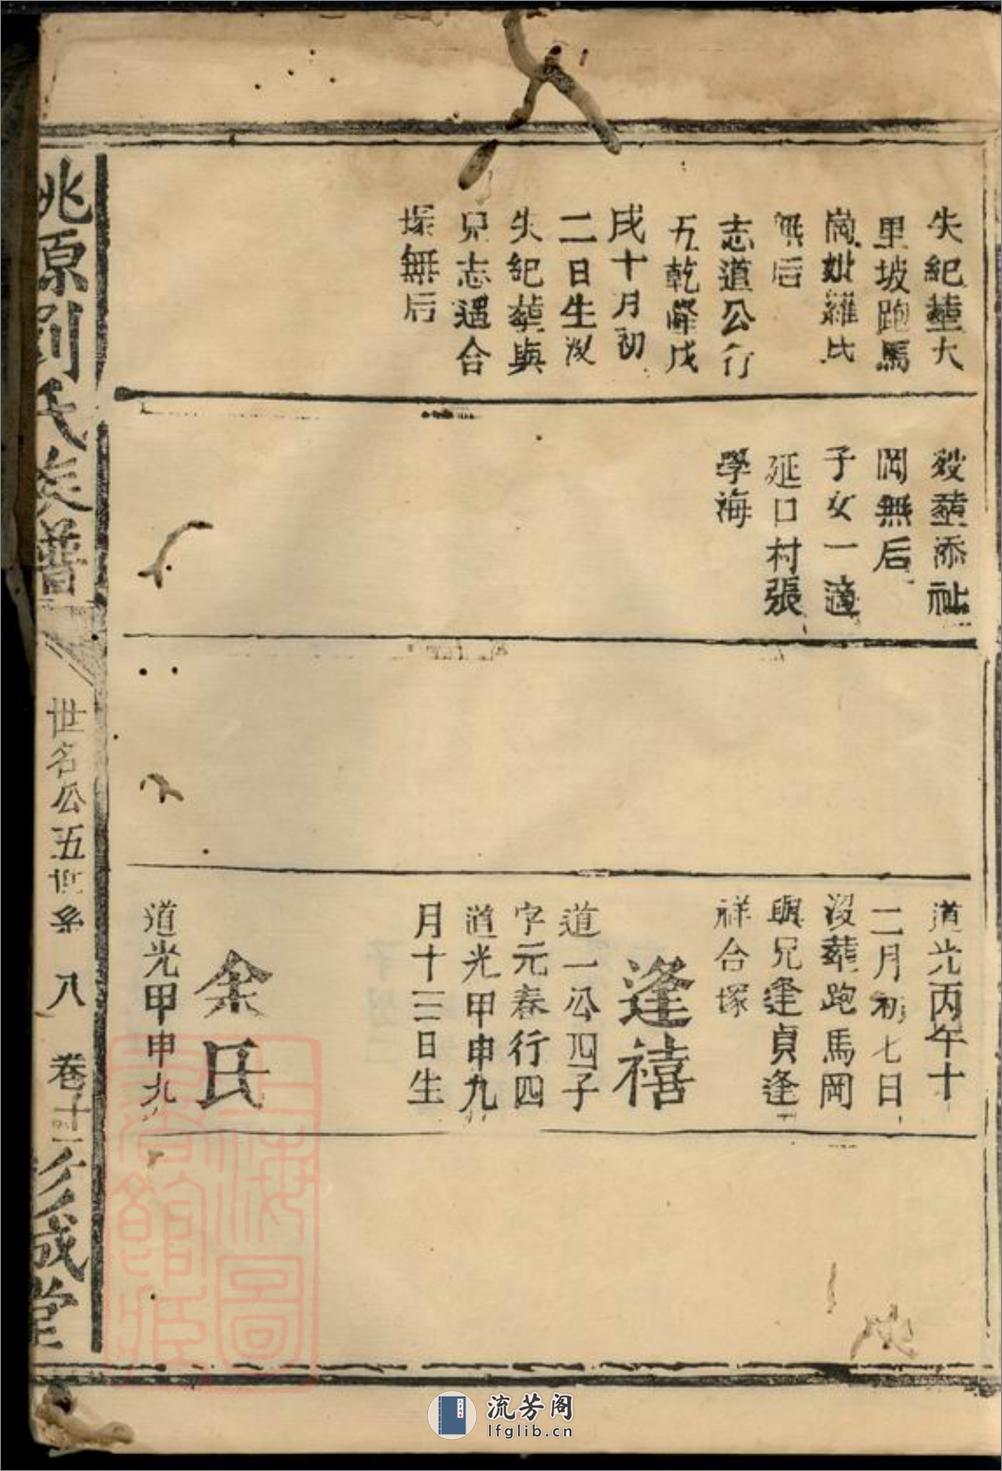 失紀葬大
里坡跑馬
崗妣羅氏
無后
志道公行
五乾隆戊
戌十月初
二日生沒
失紀葬與
兄志遇合
塚無后
歿葬添祉
岡無后
子女一適
延口村張
學海
道光丙午十
二月初七日
沒葬跑馬岡
與兄逢貞逢
祥合塚
逢禧
道一公四子
字元春行四
道光甲申九
月十三日生
余氏
道光甲申九
桃源劉氏族譜
世名公五世系 八 卷十二
彭城堂
上海圖書館藏
流芳阁
lfglib.cn